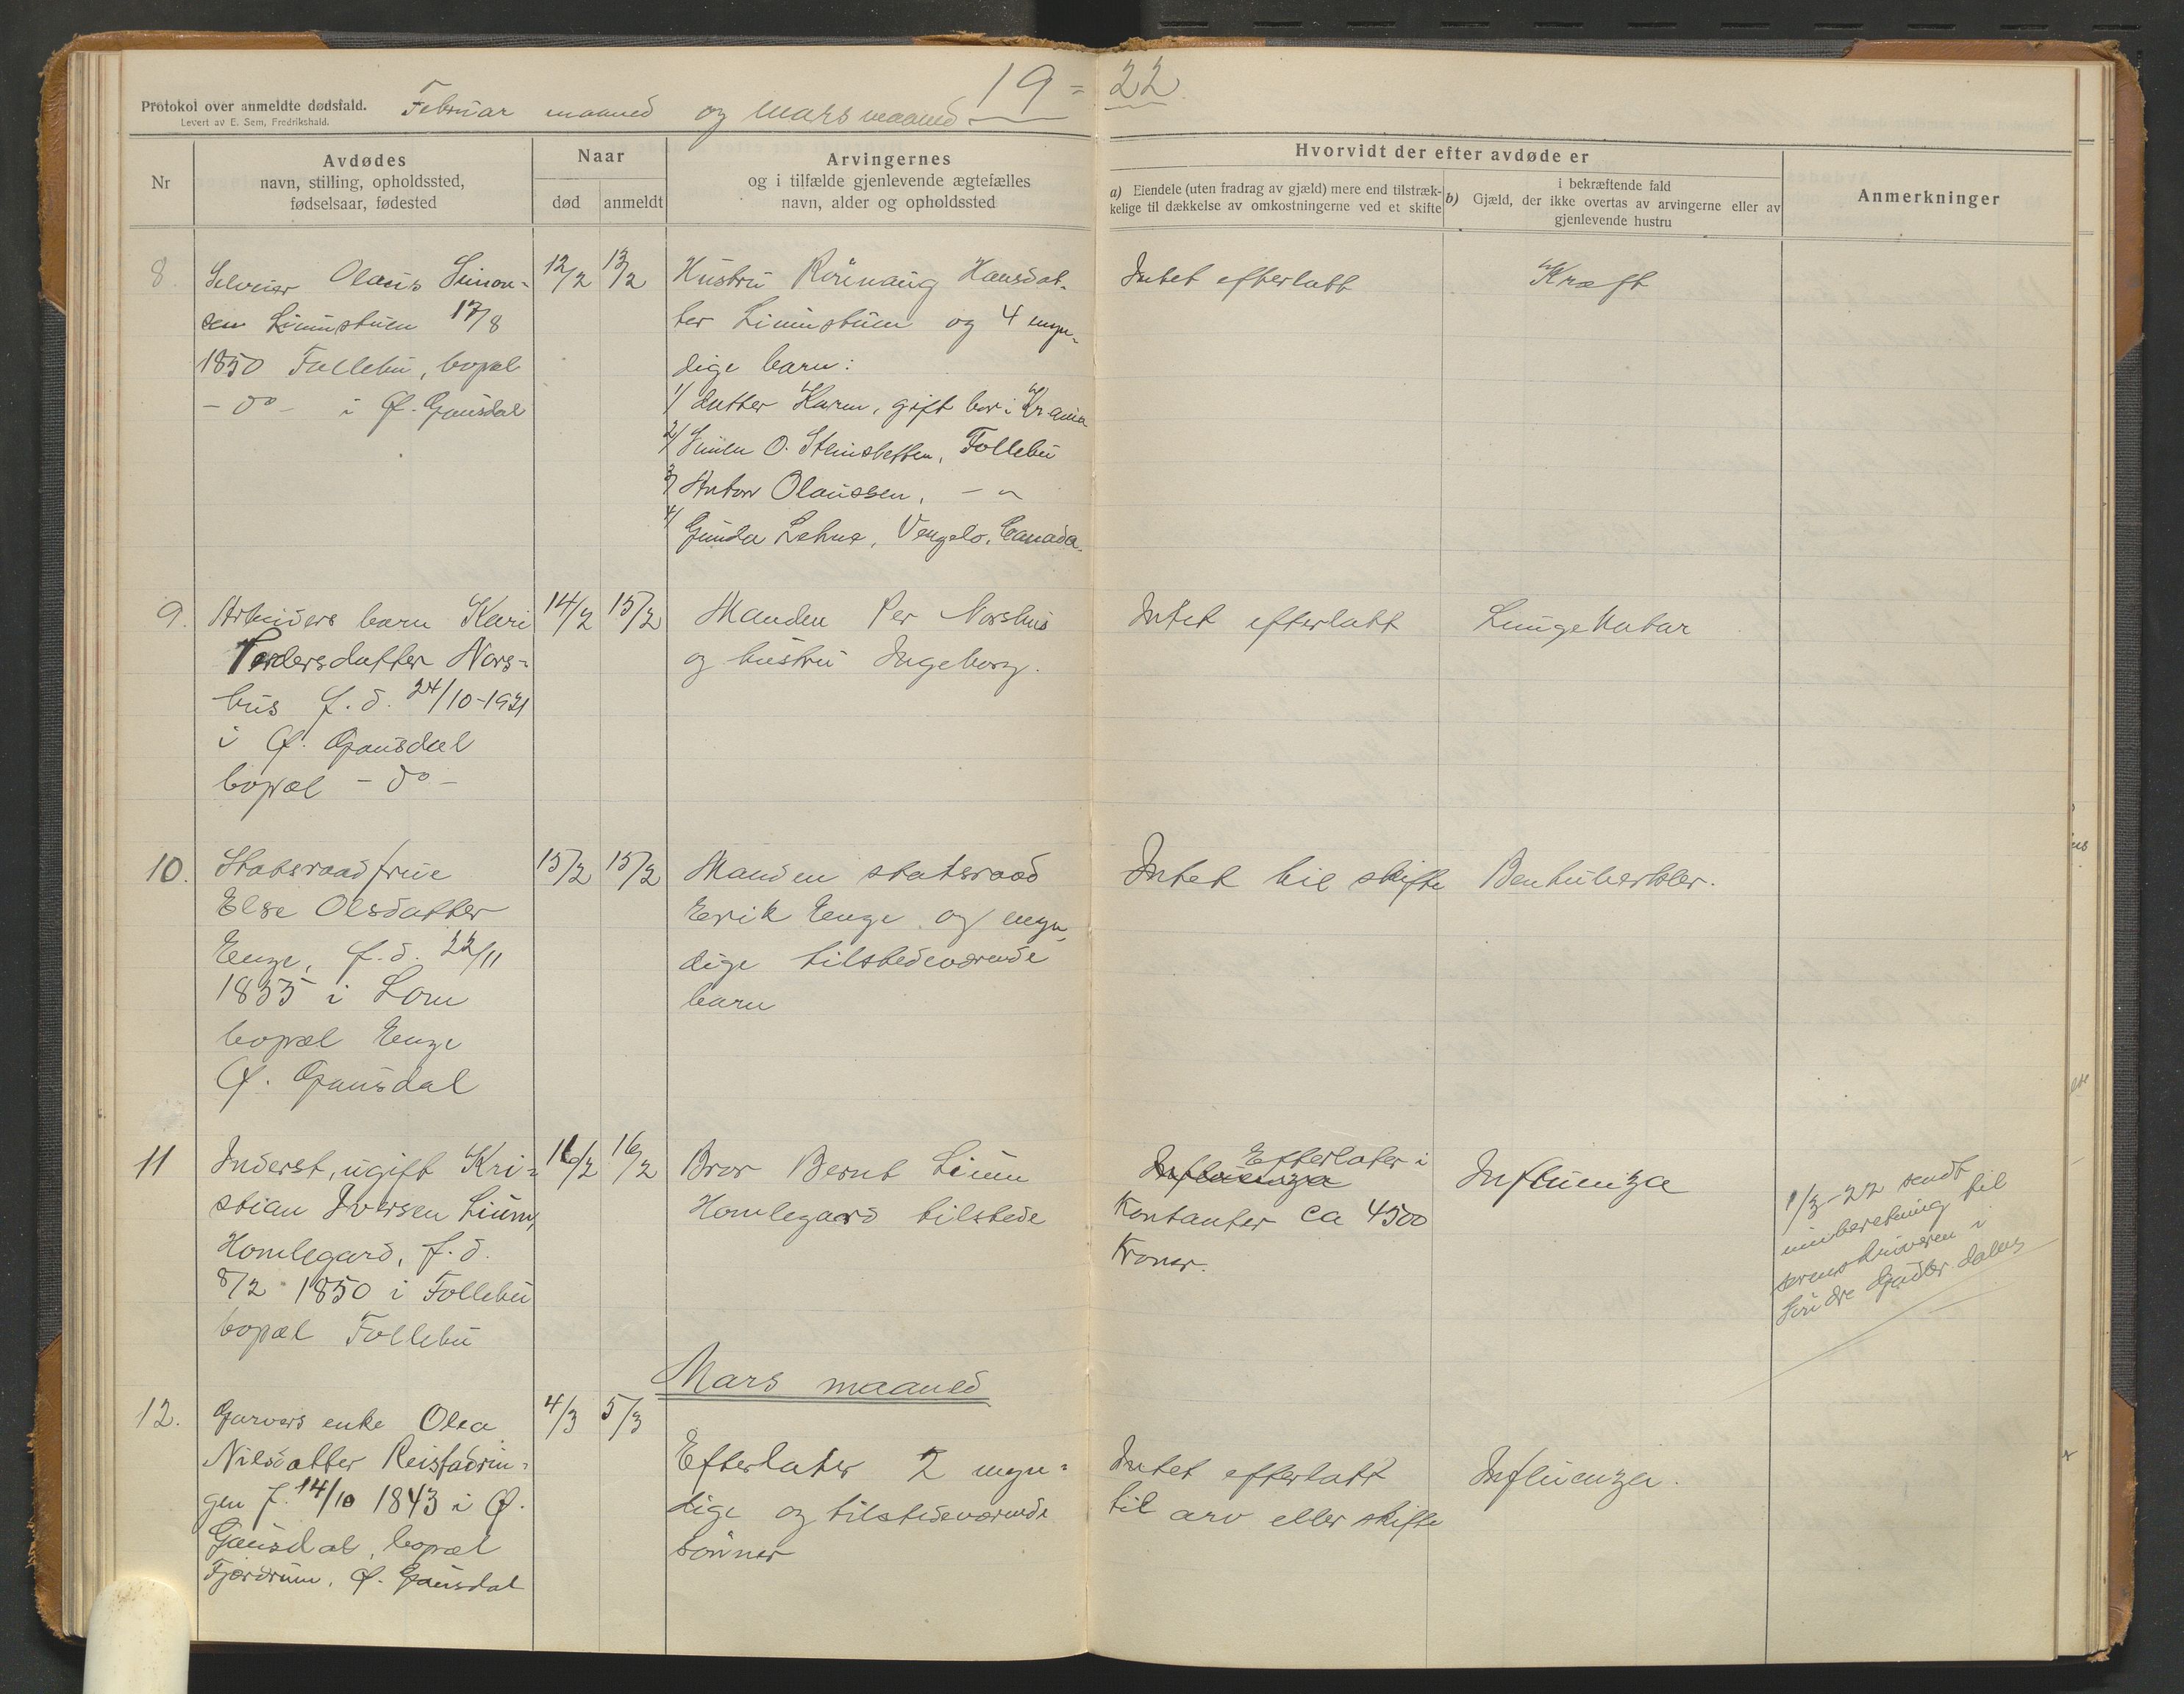 19 = 22
Protokol over anmeldte dødsfald.
Levert av E. Sem, Fredrikshald.
Februar maaned og mars maaned
Nr
Avdødes
navn, stilling, opholdssted,
fødselsaar, fødested
Naar
død
anmeldt
Arvingernes
og i tilfælde gjenlevende ægtefælles
navn, alder og opholdssted
Hvorvidt der efter avdøde er
a) Eiendele (uten fradrag av gjæld) mere end tilstræk-
kelige til dækkelse av omkostningerne ved et skifte
i bekræftende fald
b) Gjæld, der ikke overtas av arvingerne eller av
gjenlevende hustru
Anmerkninger
8.
Selveier Olaus Simon-
sen Liumstuen 17/8
1850 Follebu, bopæl
- do - i Ø. Gausdal
12/2
13/2
Hustru Rönnaug Hansdat-
ter Liumstuen og 4 myn-
dige barn:
1/ datter Karen, gift bor i Kr.ania
2/ Simen O. Steinsletten, Follebu
3/ Anton Olaussen, - "
4/ Gunda Lehne, Canada.
Intet efterlatt
Kræft
9.
Arbeiders barn Kari
Pedersdatter Nors-
hus f. d. 24/10-1921
i Ø. Gausdal
bopæl - do -
14/2
15/2
Manden Per Norshus
og hustru Ingeborg.
Intet efterlatt
Lungekatar
10.
Statsraadfrue
Else Olsdatter
Enge, f. d. 22/11
1835 i Lom
bopæl Enge
Ø. Gausdal
15/2
15/2
Manden statsraad
Erik Enge og myn-
dige tilstedeværende
barn
Intet til skifte
Bentuberkler.
11
Inderst, ugift Kri-
stian Iversen Lium,
Homlegard, f. d.
8/2 1850 i Follebu
bopæl Follebu
16/2
16/2
Bror Bernt Lium
Homlegaard tilstede
Influenza Efterlater i
Kontanter ca 4500
Kroner.
Influenza
1/3-22 sendt
innberetning til
sorenskriveren i
Søndre Gudbr.dalen
Mars maaned
12.
Garvers enke Olea
Nilsdatter
14/10 1843 i Ø.
Gausdal, bopæl
Fjærdrum, Ø. Gausdal
4/3
5/3
Efterlater 2 myn-
dige og tilstedeværende
sönner
Intet efterlatt
til arv eller skifte
Influenza.